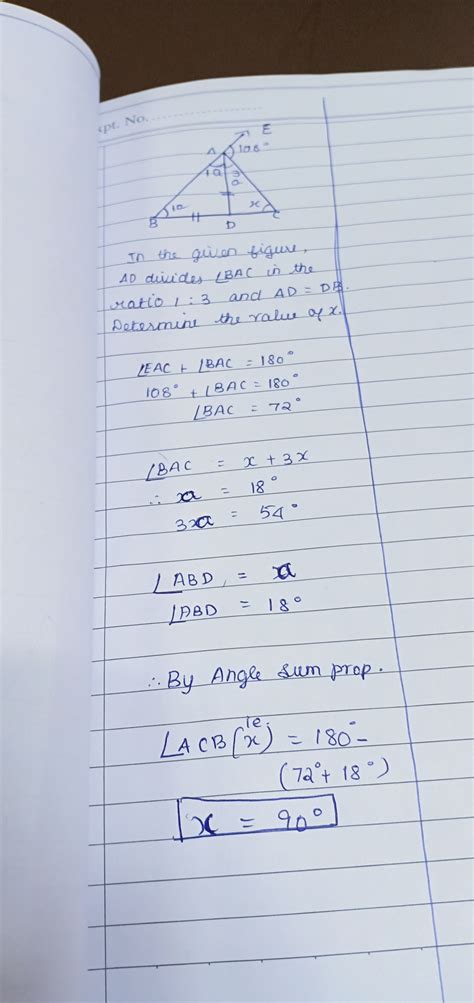 pt. No.
E
A 108°
1a 3a
1a x
B D C
In the given figure,
AD divides ∠BAC in the
ratio 1 : 3 and AD = DB.
Determine the value of x.
∠EAC + ∠BAC = 180°
108° + ∠BAC = 180°
∠BAC = 72°
∠BAC = x + 3x
∴ a = 18°
3a = 54°
∠ABD = a
∠ABD = 18°
∴ By Angle sum prop.
∠ACB (ie x) = 180° –
(72° + 18°)
x = 90°